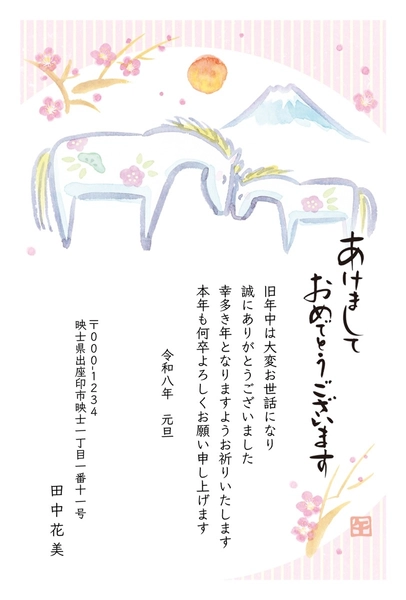 あけまして
おめでとうございます
旧年中は大変お世話になり
誠にありがとうございました
幸多き年となりますようお祈りいたします
本年も何卒よろしくお願い申し上げます
令和八年　元旦
〒000-1234
映士県出座印市映士一丁目一番十一号
田中花美
午